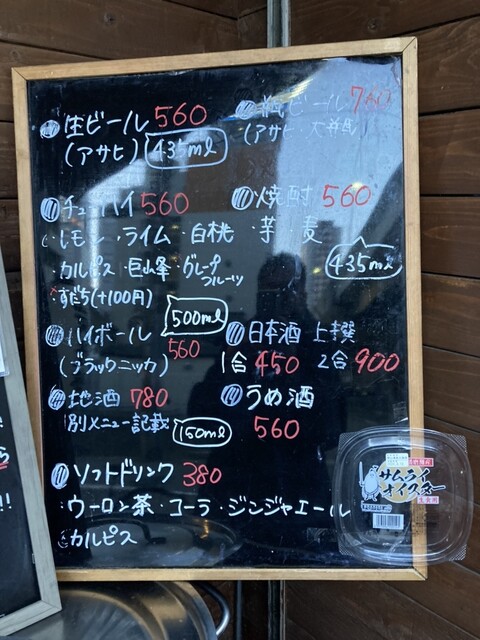 生ビール 560
(アサヒ) 435ml
瓶ビール 760
(アサヒ 大瓶)
チューハイ 560
・レモン ・ライム ・白桃
・カルピス ・巨峰 ・グレープフルーツ
・すだち(+100円)
焼酎 560
芋・麦
435ml
500ml
ハイボール 560
(ブラックニッカ)
日本酒 上撰
1合 450 2合 900
地酒 780
別メニュー記載 150ml
うめ酒
560
ソフトドリンク 380
・ウーロン茶・コーラ・ジンジャエール
・カルピス
サムライ
オイスター
生食用